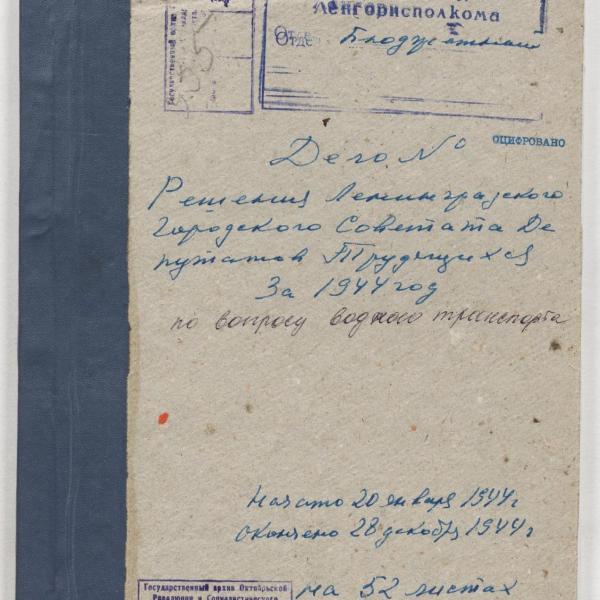 Ленгорисполкома
Отде Бюджетный
Государственный
355
ОЦИФРОВАНО
Дело №
Решения Ленинградского
Городского Советата Де
путатов Трудящихся
За 1944 год
по вопросу водного транспорта
Начато 20 января 1944 г
Окончено 28 декабря 1944 г
на 52 листах
Государственный архив Октябрьской
Революции и Социалистического